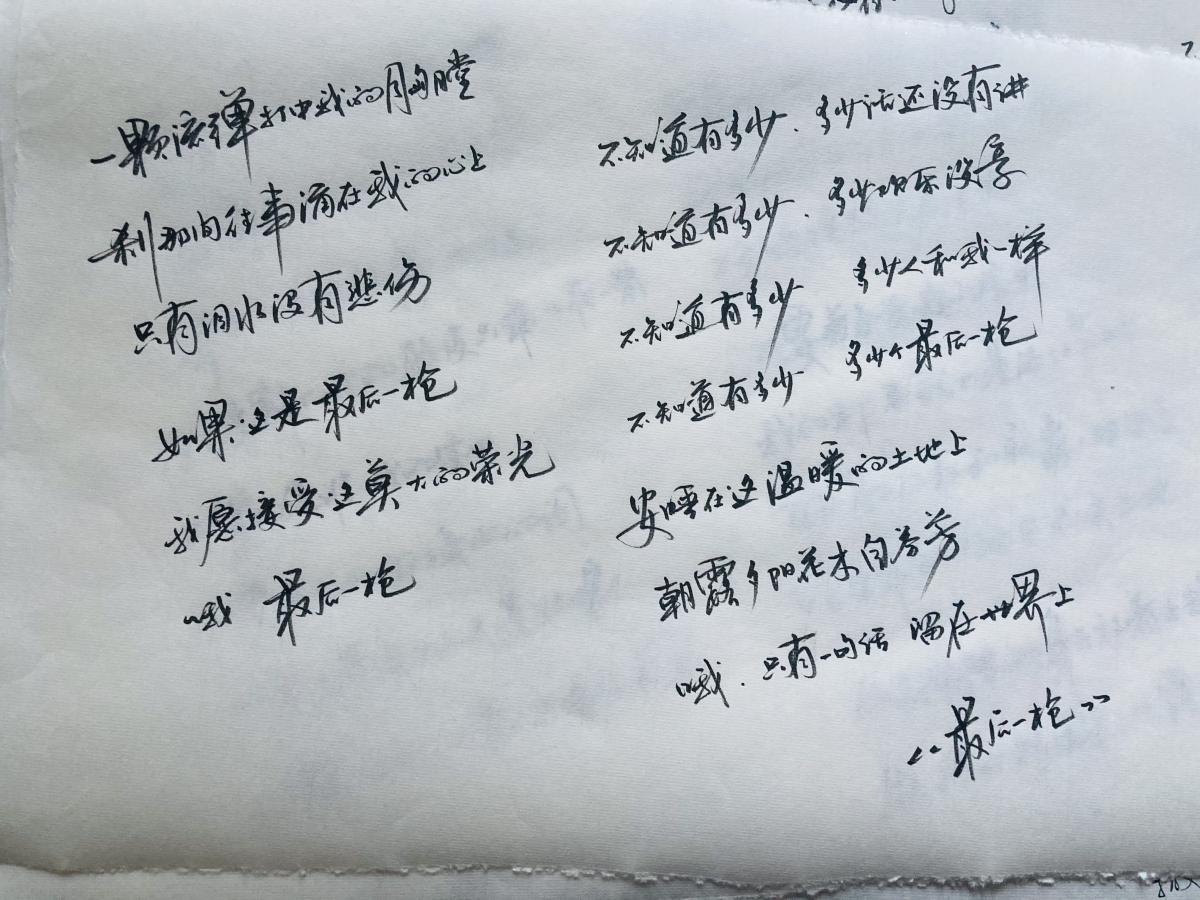 一颗流弹打中我的胸膛
刹那间往事涌在我的心上
只有泪水没有悲伤
如果这是最后一枪
我愿接受这莫大的荣光
哦 最后一枪
不知道有多少.多少话还没有讲
不知道有多少.多少欢乐没享
不知道有多少 多少人和我一样
不知道有多少 多少个最后一枪
安睡在这温暖的土地上
朝露夕阳花木自芬芳
哦.只有一句话 留在世界上
《最后一枪》